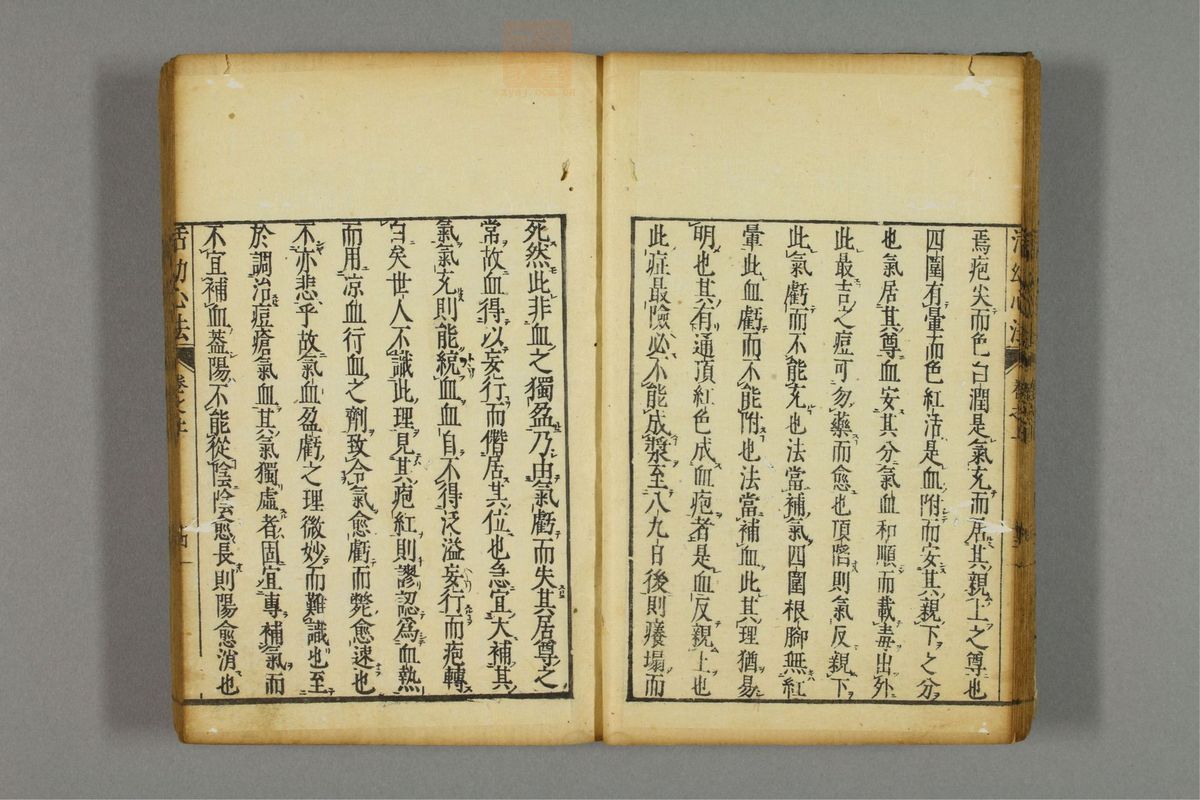 焉疱尖而色白潤是氣充而居其親上之尊也
四圍有暈而色紅活是血附而安其親下之分
也氣居其尊血安其分氣血和順而載毒出外
此最吉之痘可勿藥而愈也頂陷則氣反親下
此氣虧而不能充也法當補氣四圍根脚無紅
暈此血虧而不能附也法當補血此其理猶易
明也其有通頂紅色成血疱者是血反親上也
此症最險必不能成漿至八九日後則癢塌而
死然此非血之獨盈乃由氣虧而失其居尊之
常故血得以妄行而僭居其位也急宜大補其
氣氣充則能統血血自不得泛溢妄行而疱轉
白矣世人不識此理見其疱紅則謬認為血熱
而用凉血行血之劑致令氣愈虧而斃愈速也
不亦悲乎故氣血盈虧之理微妙而難識也至
於調治痘瘡氣血其氣獨虛者固宜專補氣而
不宜補血蓋陽不能從陰陰愈長則陽愈消也
活幼心法
卷之上